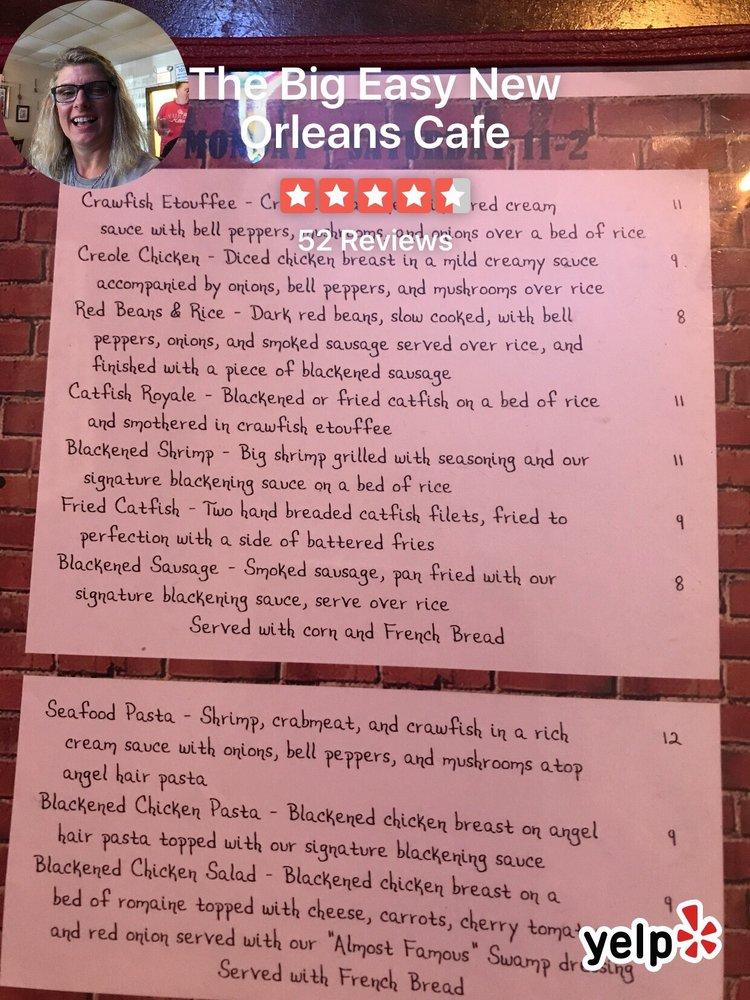 The Big Easy New
Orleans Cafe
MONDAY - SATURDAY 11-2
52 Reviews
Crawfish Etouffee - red cream 11
sauce with bell peppers, mushrooms, and onions over a bed of rice
Creole Chicken - Diced chicken breast in a mild creamy sauce 9
accompanied by onions, bell peppers, and mushrooms over rice
Red Beans & Rice - Dark red beans, slow cooked, with bell 8
peppers, onions, and smoked sausage served over rice, and
finished with a piece of blackened sausage
Catfish Royale - Blackened or fried catfish on a bed of rice 11
and smothered in crawfish etouffee
Blackened Shrimp - Big shrimp grilled with seasoning and our 11
signature blackening sauce on a bed of rice
Fried Catfish - Two hand breaded catfish filets, fried to 9
perfection with a side of battered fries
Blackened Sausage - Smoked sausage, pan fried with our 8
signature blackening sauce, serve over rice
Served with corn and French Bread
Seafood Pasta - Shrimp, crabmeat, and crawfish in a rich 12
cream sauce with onions, bell peppers, and mushrooms atop
angel hair pasta
Blackened Chicken Pasta - Blackened chicken breast on angel 9
hair pasta topped with our signature blackening sauce
Blackened Chicken Salad - Blackened chicken breast on a 9
bed of romaine topped with cheese, carrots, cherry
and red onion served with our "Almost Famous" Swamp dressing
Served with French Bread
yelp